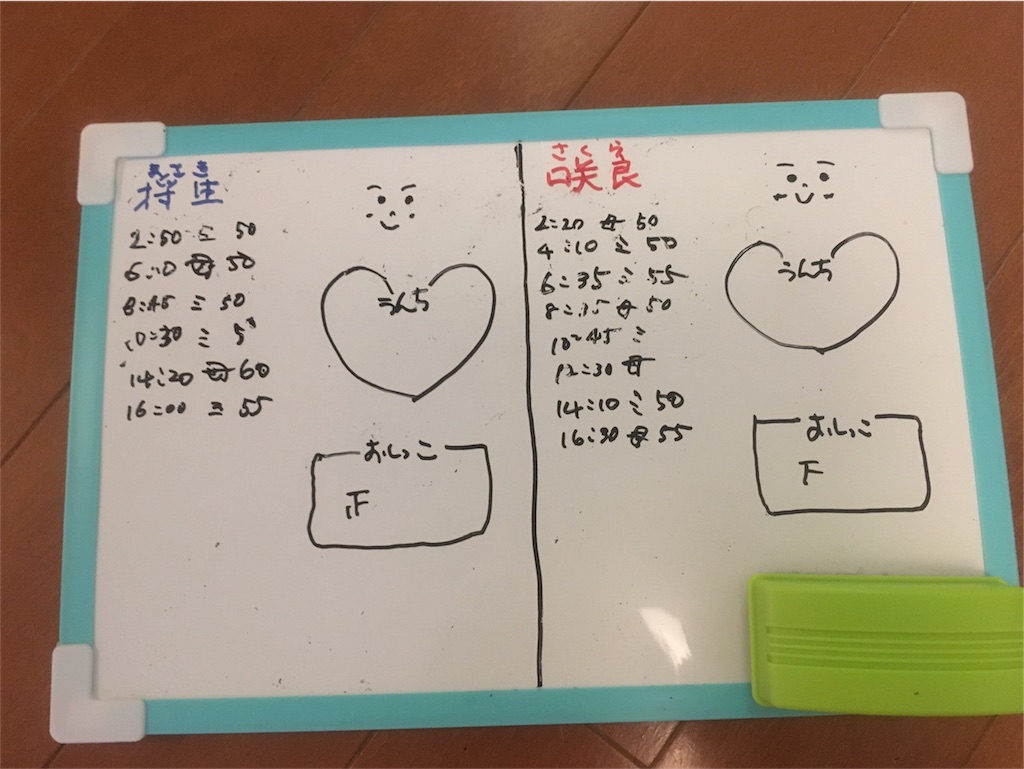 2:50 ミ 50
6:10 母 50
8:45 ミ 50
10:30 ミ 5
14:20 母 60
16:00 ミ 55
うんち
おしっこ
さくら
咲良
2:20 母 50
4:10 ミ 50
6:35 ミ 55
8:35 母 50
10:45 ミ
12:30 母
14:10 ミ 50
16:30 母 55
うんち
おしっこ
下